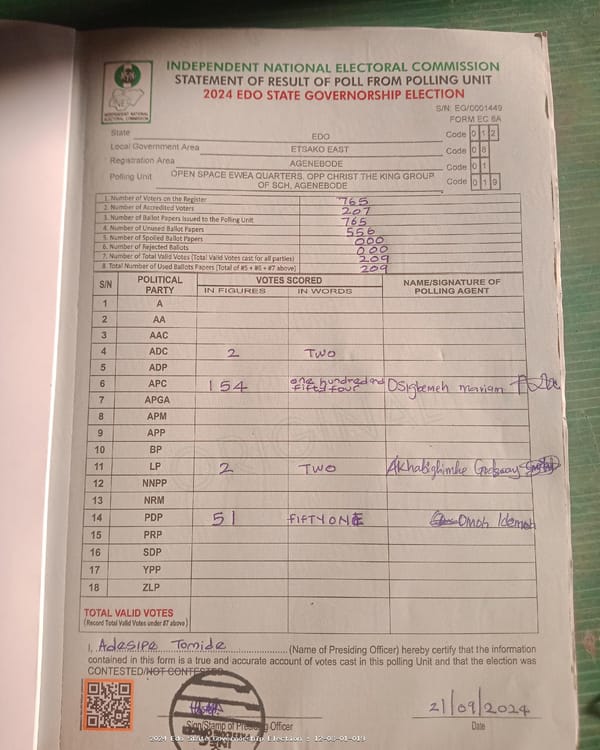 INDEPENDENT NATIONAL ELECTORAL COMMISSION
STATEMENT OF RESULT OF POLL FROM POLLING UNIT
2024 EDO STATE GOVERNORSHIP ELECTION
INDEPENDENT NATIONAL ELECTORAL COMMISSION
S/N: EG/0001449
FORM EC 8A
State EDO Code 0 1 2
Local Government Area ETSAKO EAST Code 0 8
Registration Area AGENEBODE Code 0 1
Polling Unit OPEN SPACE EWEA QUARTERS, OPP CHRIST THE KING GROUP OF SCH, AGENEBODE Code 0 1 9
1. Number of Voters on the Register 765
2. Number of Accredited Voters 207
3. Number of Ballot Papers Issued to the Polling Unit 765
4. Number of Unused Ballot Papers 556
5. Number of Spoiled Ballot Papers 000
6. Number of Rejected Ballots 000
7. Number of Total Valid Votes (Total Valid Votes cast for all parties) 209
8. Total Number of Used Ballots Papers (Total of #5 + #6 + #7 above) 209
S/N POLITICAL PARTY VOTES SCORED NAME/SIGNATURE OF POLLING AGENT
IN FIGURES IN WORDS
1 A
2 AA
3 AAC
4 ADC 2 TWO
5 ADP
6 APC 154 one hundred and fifty four Osigbemeh mariam
7 APGA
8 APM
9 APP
10 BP
11 LP 2 TWO Akhabighimhe Godsway
12 NNPP
13 NRM
14 PDP 51 FIFTY ONE Omoh Idemoh
15 PRP
16 SDP
17 YPP
18 ZLP
TOTAL VALID VOTES
(Record Total Valid Votes under #7 above)
ORIGINAL
I, Adesipe Tomide (Name of Presiding Officer) hereby certify that the information
contained in this form is a true and accurate account of votes cast in this polling Unit and that the election was
CONTESTED/NOT CONTESTED
21/09/2024
Sign/Stamp of Presiding Officer Date
2024 Edo State Governorship Election : 12-08-01-019